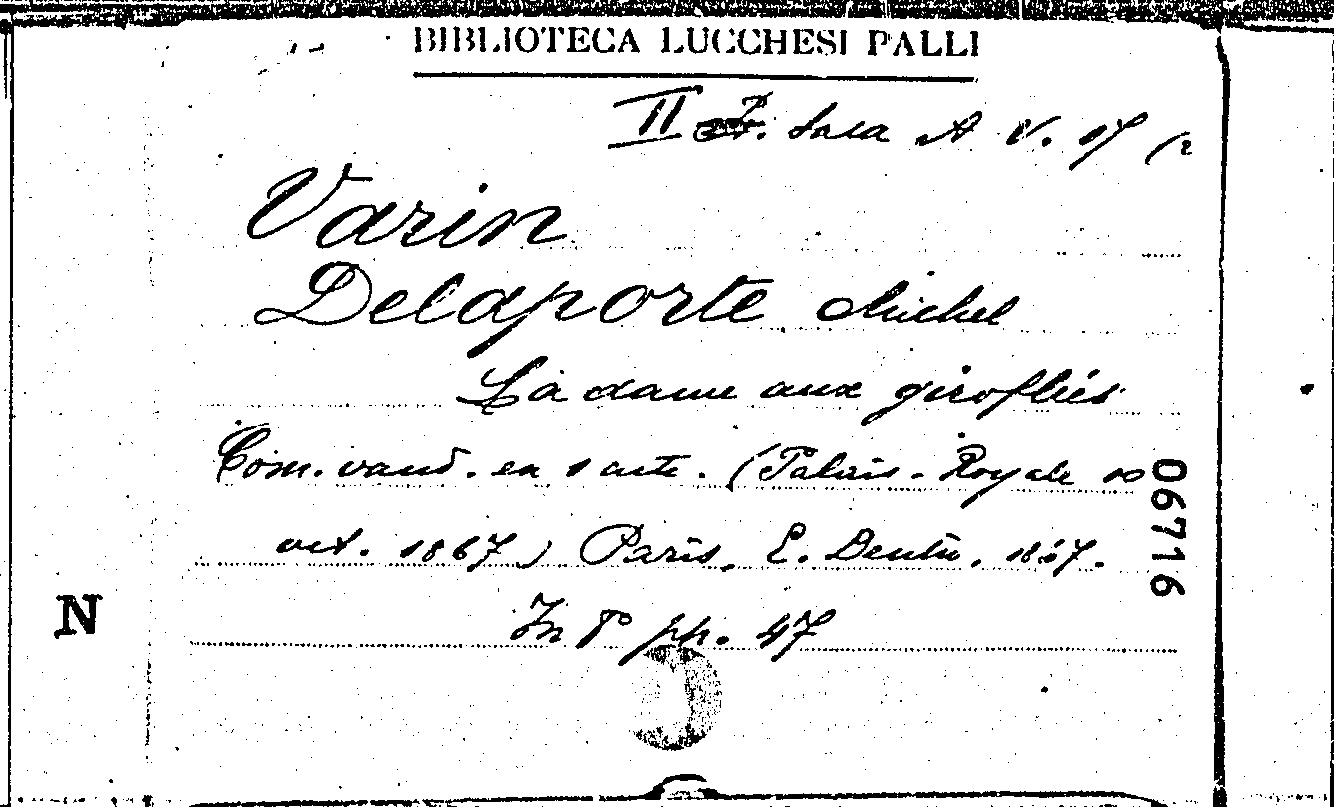 BIBLIOTECA LUCCHESI PALLI
II Sala A V. 17 (2
Varin
Delaporte Michel
La dame aux giroflées
Com. vaud. en 1 acte. (Palais-Royale 10
oct. 1867) Paris, E. Dentu, 1867.
In 8° pp. 47
06716
N